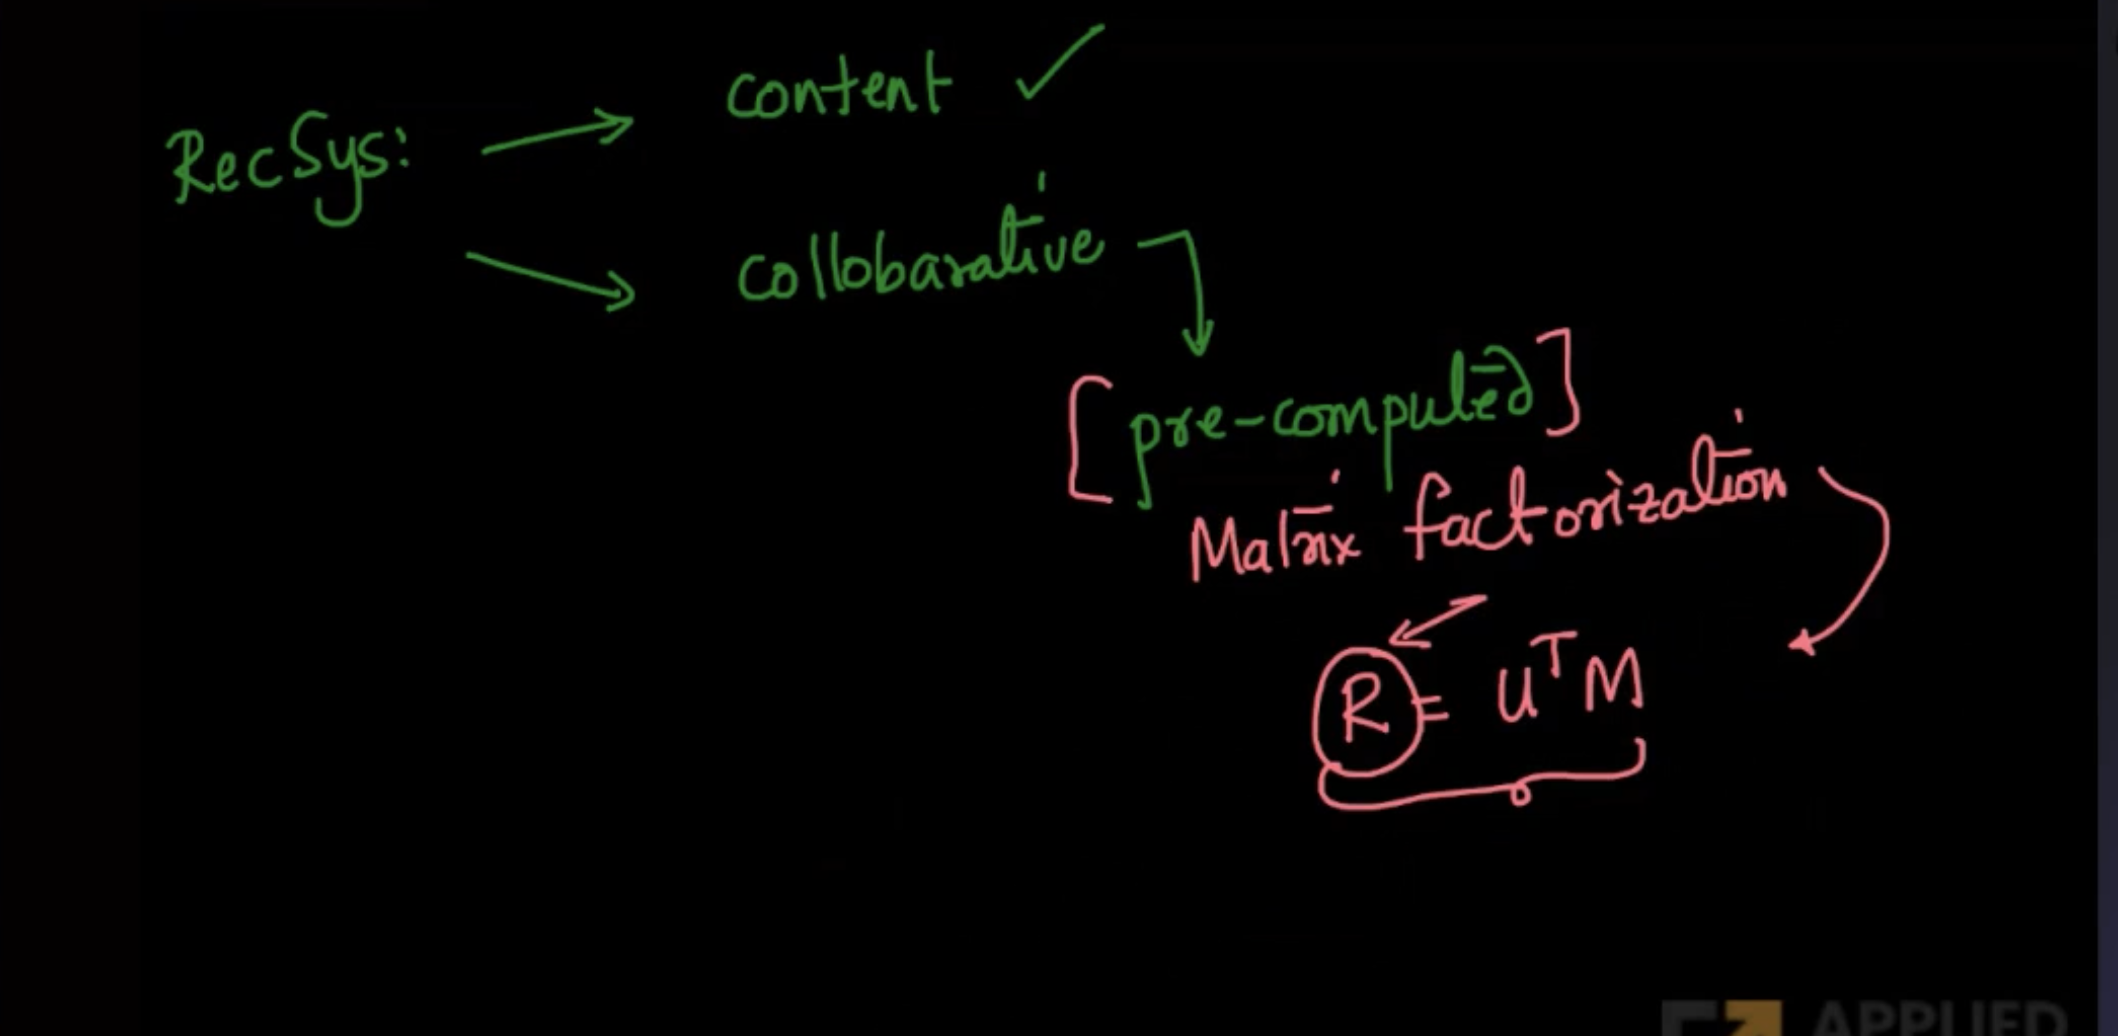 RecSys:
content ✓
collobarative
[pre-computed]
Matrix factorization
R = UᵀM
APPLIED